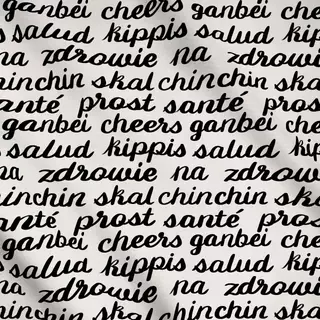 ganbëi cheers ganbëi
salud kippis salud kippis
na zdrowie na zdrowie
chinchin skal chinchin skal
santé prost santé prost
ganbëi cheers ganbëi cheers
salud kippis salud kippis
na zdrowie na zdrowie
chinchin skal chinchin skal
santé prost santé prost
ganbëi cheers ganbëi cheers
salud kippis salud kippis
na zdrowie na zdrowie
chinchin skal chinchin skal